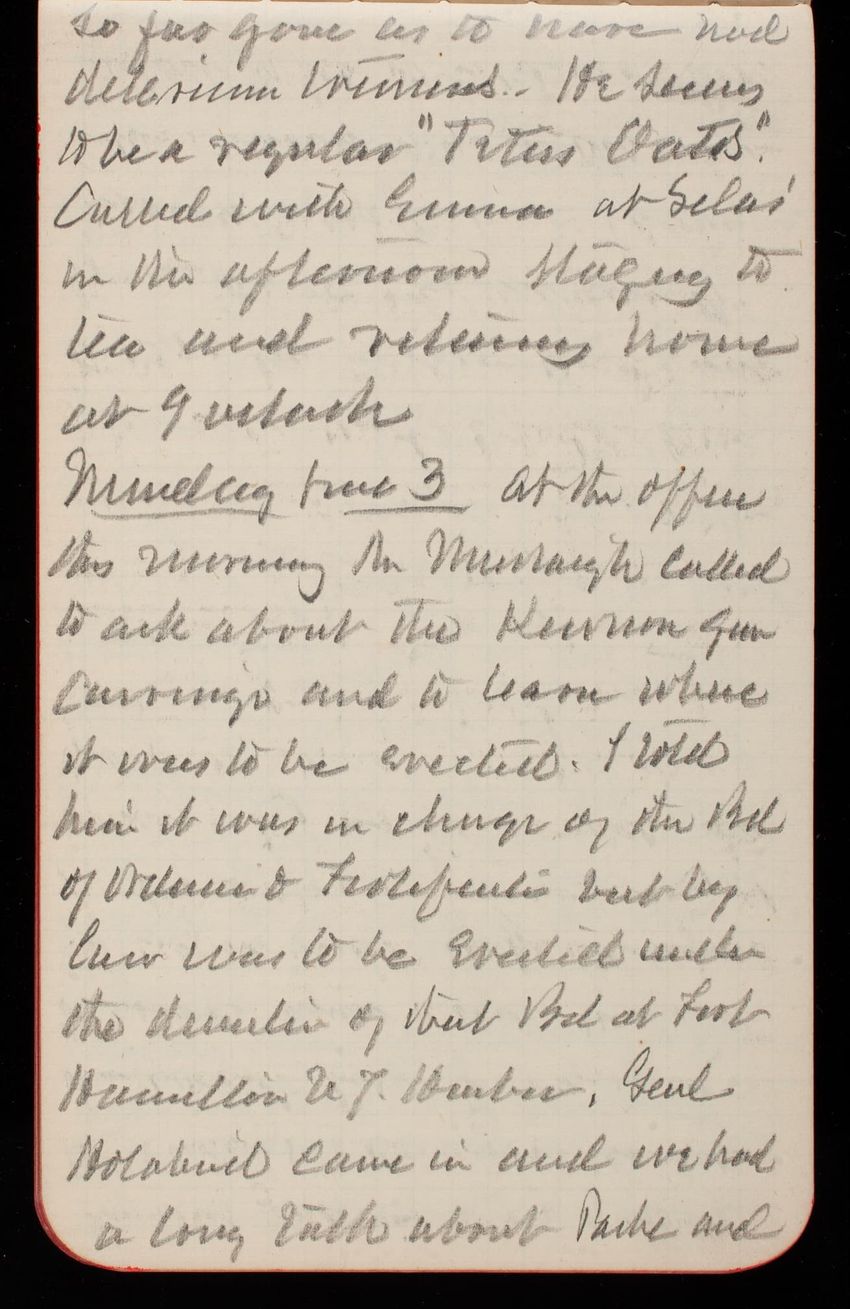 so far gone as to have had
delerium tremens. - He seems
to be a regular "Titus Oats".
Called with Emma at Selas'
in the afternoon staying to
tea and returning home
at 9 oclock
Monday June 3 At the office
this morning Mr Murtaugh called
to ask about the gun
carriage and to learn where
it was to be erected. I told
him it was in charge of the Bd
of Ordnance & Fortification but by
law was to be erected under
the direction of that Bd at Fort
Hamilton N Y. Harbor, Genl
Holabird came in and we had
a long talk about Parke and